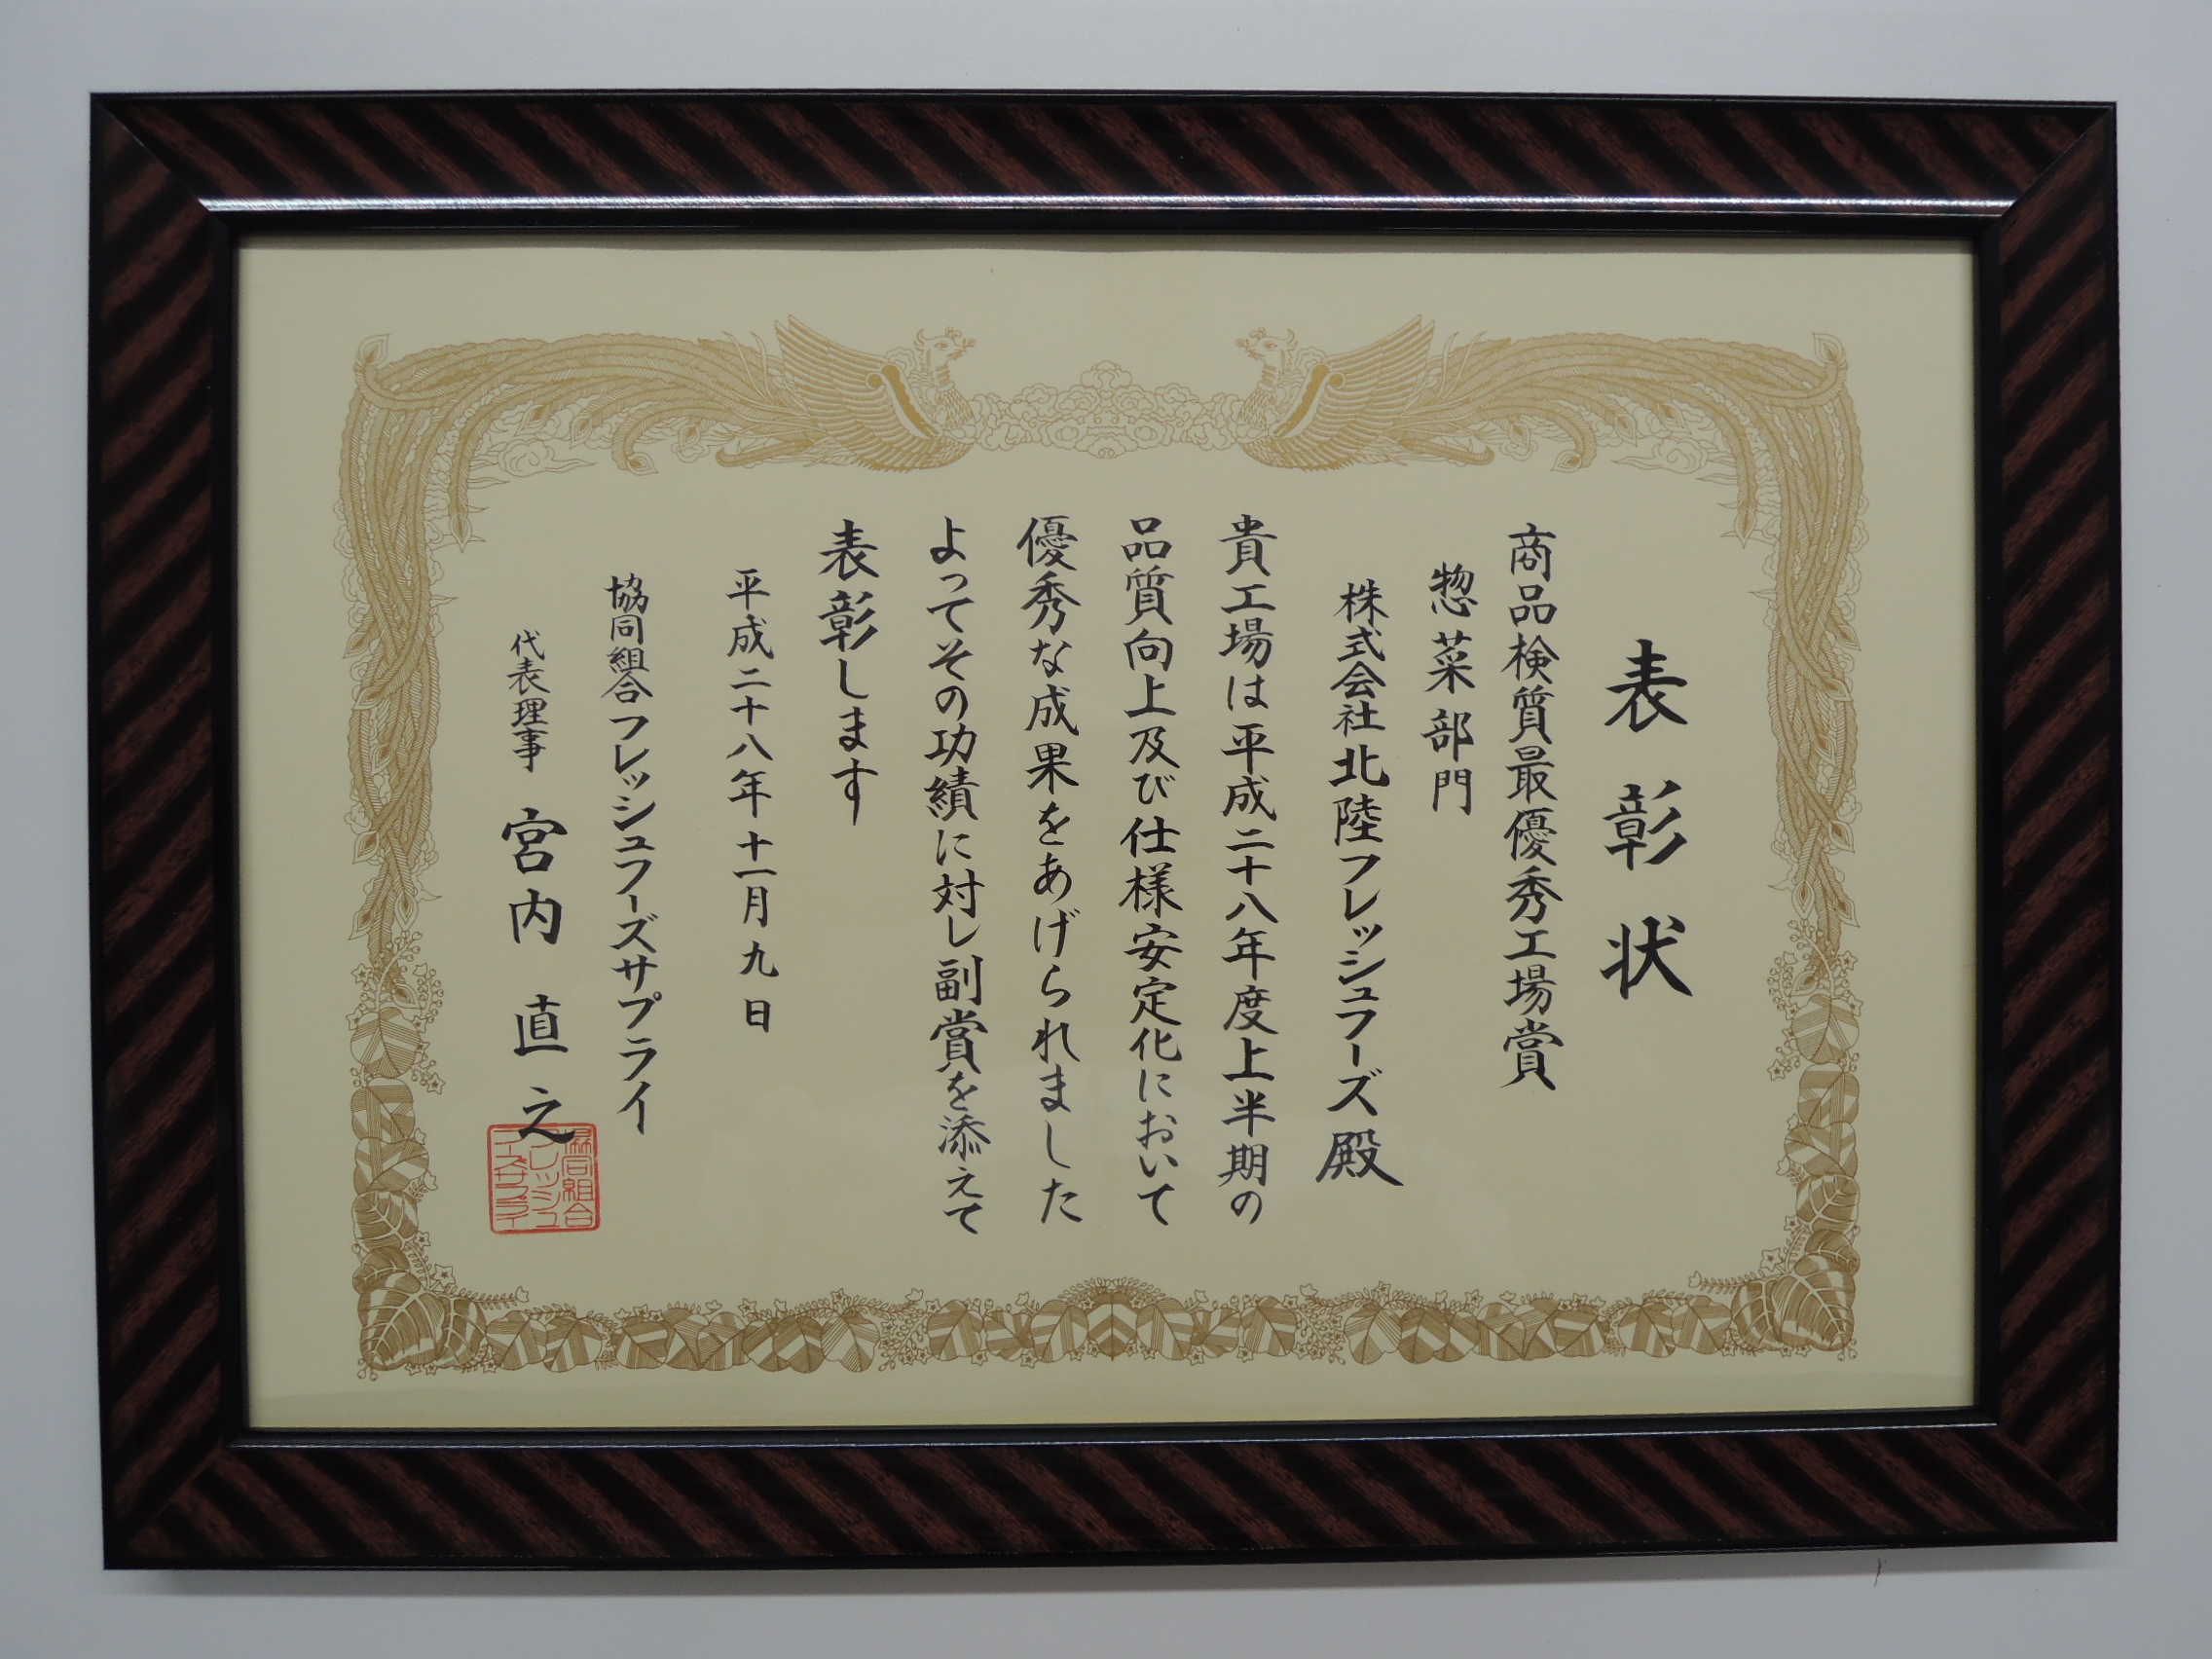 表彰状
商品検質最優秀工場賞
惣菜部門
株式会社北陸フレッシュフーズ殿
貴工場は平成二十八年度上半期の
品質向上及び仕様安定化において
優秀な成果をあげられました
よってその功績に対し副賞を添えて
表彰します
平成二十八年十一月九日
協同組合フレッシュフーズサプライ
代表理事 宮内直之
協同組合
フレッシュ
フーズサプライ